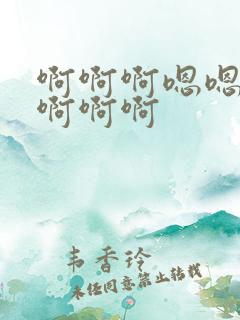 啊啊啊嗯嗯
啊啊啊
韦香玲
未经同意禁止转载